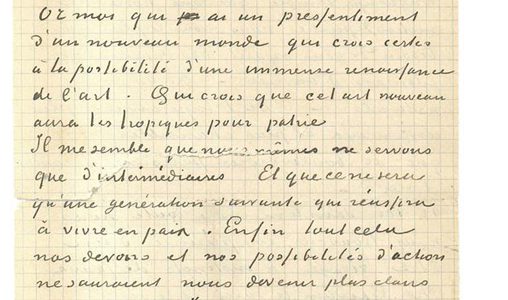 Or moi qui ai un pressentiment
d'un nouveau monde qui crois certes
à la possibilité d'une immense renaissance
de l'art. Qui crois que cet art nouveau
aura les tropiques pour patrie
Il me semble que nous mêmes ne servons
que d'intermédiaires Et que ce ne sera
qu'une génération suivante qui réussira
à vivre en paix. Enfin tout cela
nos devoirs et nos possibilités d'action
ne sauraient nous devenir plus clairs